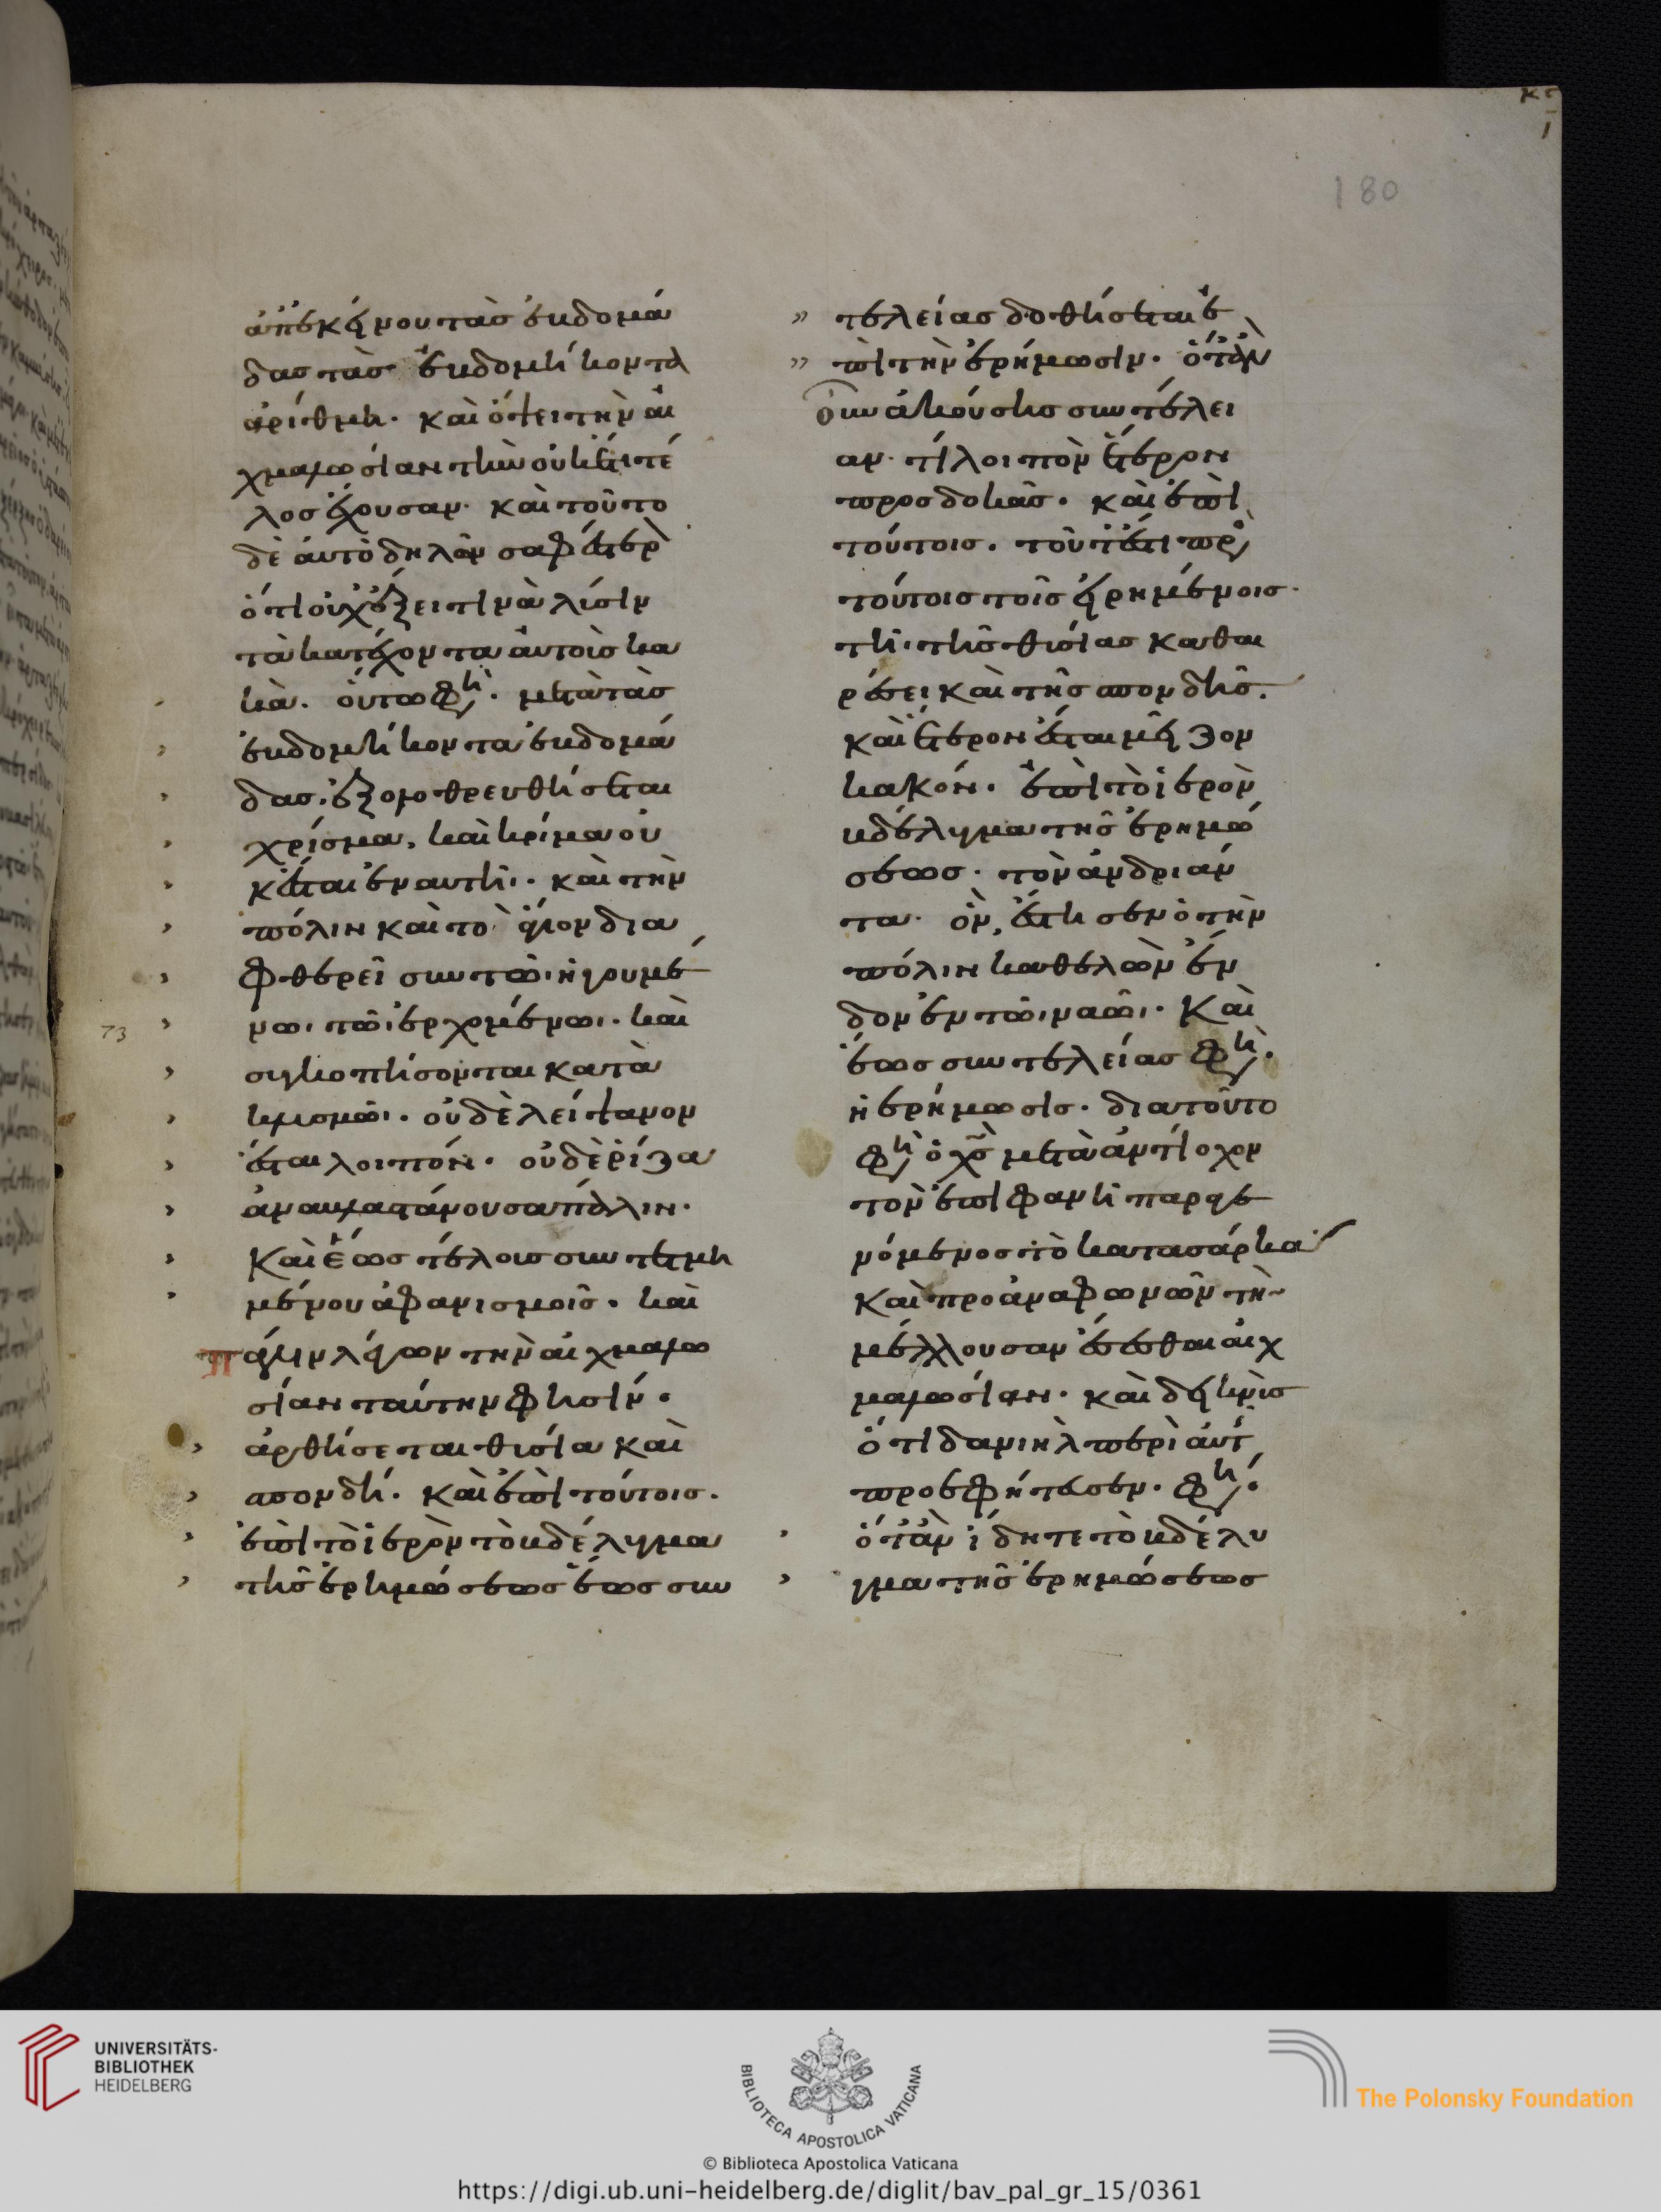 κς
ι
180
ἀπεκείνου τὰς ἑβδομά
δας τὰς ἑβδομήκοντα
ἀρίθμη· καὶ ὅτει τὴν αἰ
χμαλωσίαν τὴν οὐκέτι τέ
λος ἔχουσαν· καὶ τοῦτο
δὲ αὐτὸ δηλῶν σαφέστερον
ὅτι οὐχ ἕξει τινὰ λύσιν
τὰ κατέχοντα αὐτοὺς κα
κὰ. οὕτω φησὶ· μετὰ τὰς
ἑβδομήκοντα ἑβδομά
δας. ἐξολοθρευθήσεται
χρίσμα, καὶ κρίμα οὐ
κ ἔσται ἐν αυτῆι· καὶ τὴν
πόλιν καὶ τὸ ἅγιον δια
φθερεῖ συν τῶι ἡγουμέ
νωι τῶι ἐρχομένωι. καὶ
συγκοπήσονται κατα
κλυσμῶι. οὐδὲ λείψανον
ἔσται λοιπόν. οὐδὲ ῥίζα
ἀναβλαστάνουσα πάλιν.
73
Καὶ ἕως τέλους συντετμη
μένου ἀφανισμοῖς. καὶ
πάλιν λέγων τὴν αἰχμαλω
σίαν ταύτην φησίν.
ἀρθήσεται θυσία καὶ
σπονδή. καὶ ἐπὶ τούτοις.
ἐπὶ τὸ ἱερὸν τὸ βδέλυγμα
τῆς ἐρημώσεως ἕως συν
τελείας δοθήσεται ἐ
πὶ τὴν ἐρήμωσιν. ὅταν
οὖν ἀκούσης συντέλει
αν· τί λοιπὸν ἕτερον
προσδοκᾶς. καὶ ἐπὶ
τούτοις. τοῦτέστι πρὸς
τούτοις τοῖς εἰρημένοις·
τῆι τῆς θυσίας καθαι
ρέσει καὶ τῆς σπονδῆς.
καὶ ἕτερον ἔσται μεῖζον
κακόν. ἐπὶ τὸ ἱερὸν
βδέλυγμα τῆς ἐρημώ
σεως. τὸν ἀνδριάν
τα· ὃν, ἔστησεν ὁ τὴν
πόλιν καθελὼν ἔν
δον ἐν τῶι ναῶι. Καὶ
ἕως συντελείας φησὶ.
ἡ ἐρήμωσις. διατοῦτο
φησὶ ὁ χς μετὰ ἀντίοχον
τὸν ἐπιφανῆ παραγε
νόμενος τὸ κατα σάρκα
Καὶ προαναφωνῶν τὴν
μέλλουσαν ἔσεσθαι αἰχ
μαλωσίαν. καὶ δεικνὺς
ὅτι δανιὴλ περὶ αὐτῆς
προεφήτευσεν. φησὶ.
ὅταν ἴδητε τὸ βδέλυ
γμα τῆς ἐρημώσεως
UNIVERSITÄTS-
BIBLIOTHEK
HEIDELBERG
BIBLIOTECA APOSTOLICA VATICANA
The Polonsky Foundation
© Biblioteca Apostolica Vaticana
https://digi.ub.uni-heidelberg.de/diglit/bav_pal_gr_15/0361